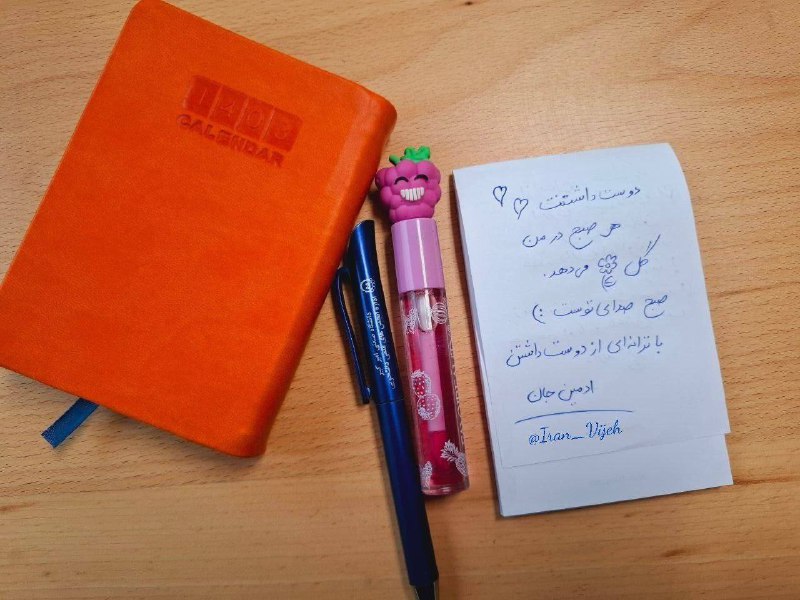 1403
CALENDAR
دوست داشتنت
هر صبح در من
گل می‌دهد.
صبح صدای توست :)
با ترانه‌ای از دوست داشتن
ادمین جان
@Iran_Vijeh